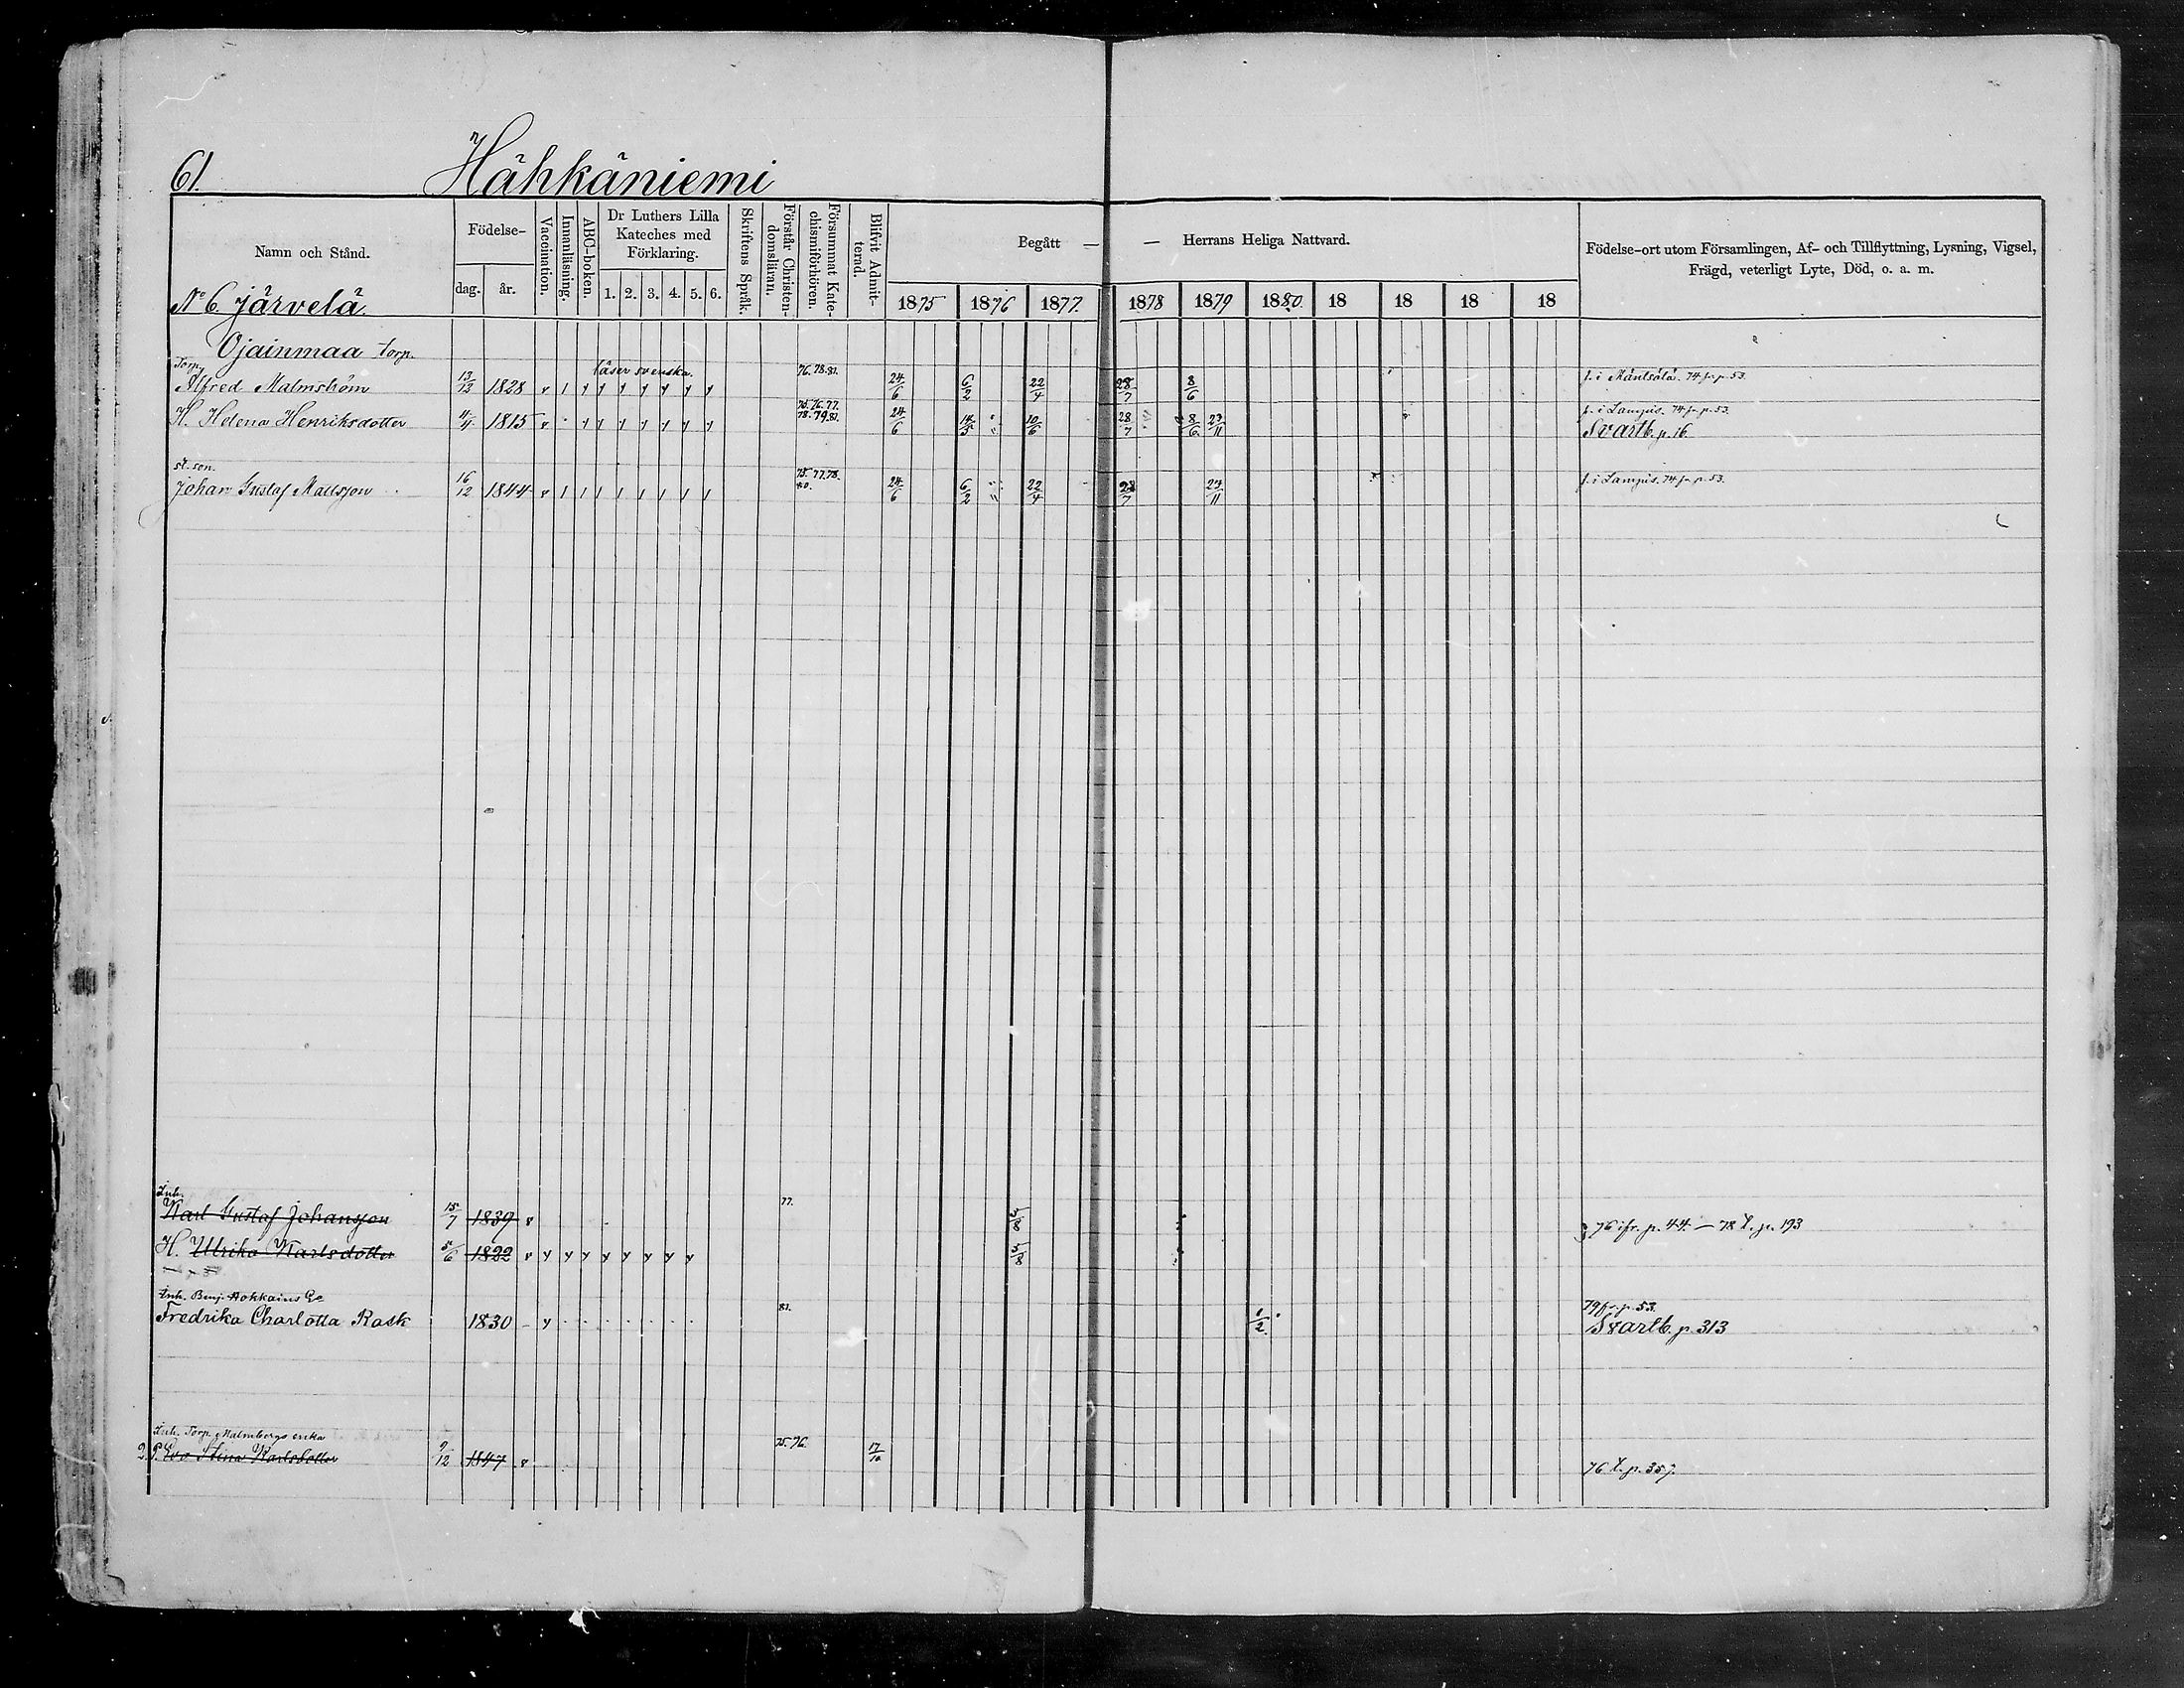 61. Hähkäniemi
Namn och Stånd.
Födelse-
dag. år.
Vaccination.
Innanläsning.
ABC-boken.
Dr Luthers Lilla
Kateches med
Förklaring.
1. 2. 3. 4. 5. 6.
Skriftens Språk.
Förstår Christen-
domsläran.
Försummat Kate-
chismiförhören.
Blifvit Admit-
terad.
Begått — — Herrans Heliga Nattvard.
1875 1876 1877. 1878 1879 1880. 18 18 18 18
Födelse-ort utom Församlingen, Af- och Tillflyttning, Lysning, Vigsel,
Frägd, veterligt Lyte, Död, o. a. m.
No 6. Järvelä
Ojainmaa torp.
Torp.
läser svenska. 76. 78. 81.
Alfred Malmström 13/12 1828 24/6 6/2 22/4 28/7 8/6 f. i Mäntsälä. 74 fr. p. 53.
75. 76. 77.
78. 79 81.
H. Helena Henriksdotter 4/4 1815 24/6 14/5 10/6 28/7 8/6 23/11 f. i Lampis. 74 fr. p. 53.
Svartb. p. 16.
st. son.
75. 77. 78.
80.
Johan Gustaf Mattsson 16/12 1844 24/6 6/2 22/4 28/7 23/11 f. i Lampis. 74 fr. p. 53.
Inh.
77.
Karl Gustaf Johansson 15/7 1839 5/8 76 ifr. p. 44. — 78 t. p. 193
H. Ulrika Karlsdotter 5/6 1822 5/8
Inh. Benj. Hokkains Ee
81. 79 fr. p. 53.
Fredrika Charlotta Rask 1830 1/2 Svartb. p. 313
Inh. Torp. Malmbergs enka
75. 76.
D. P. Eva Stina Karlsdotter 9/12 1847 17/10 76 t. p. 357.